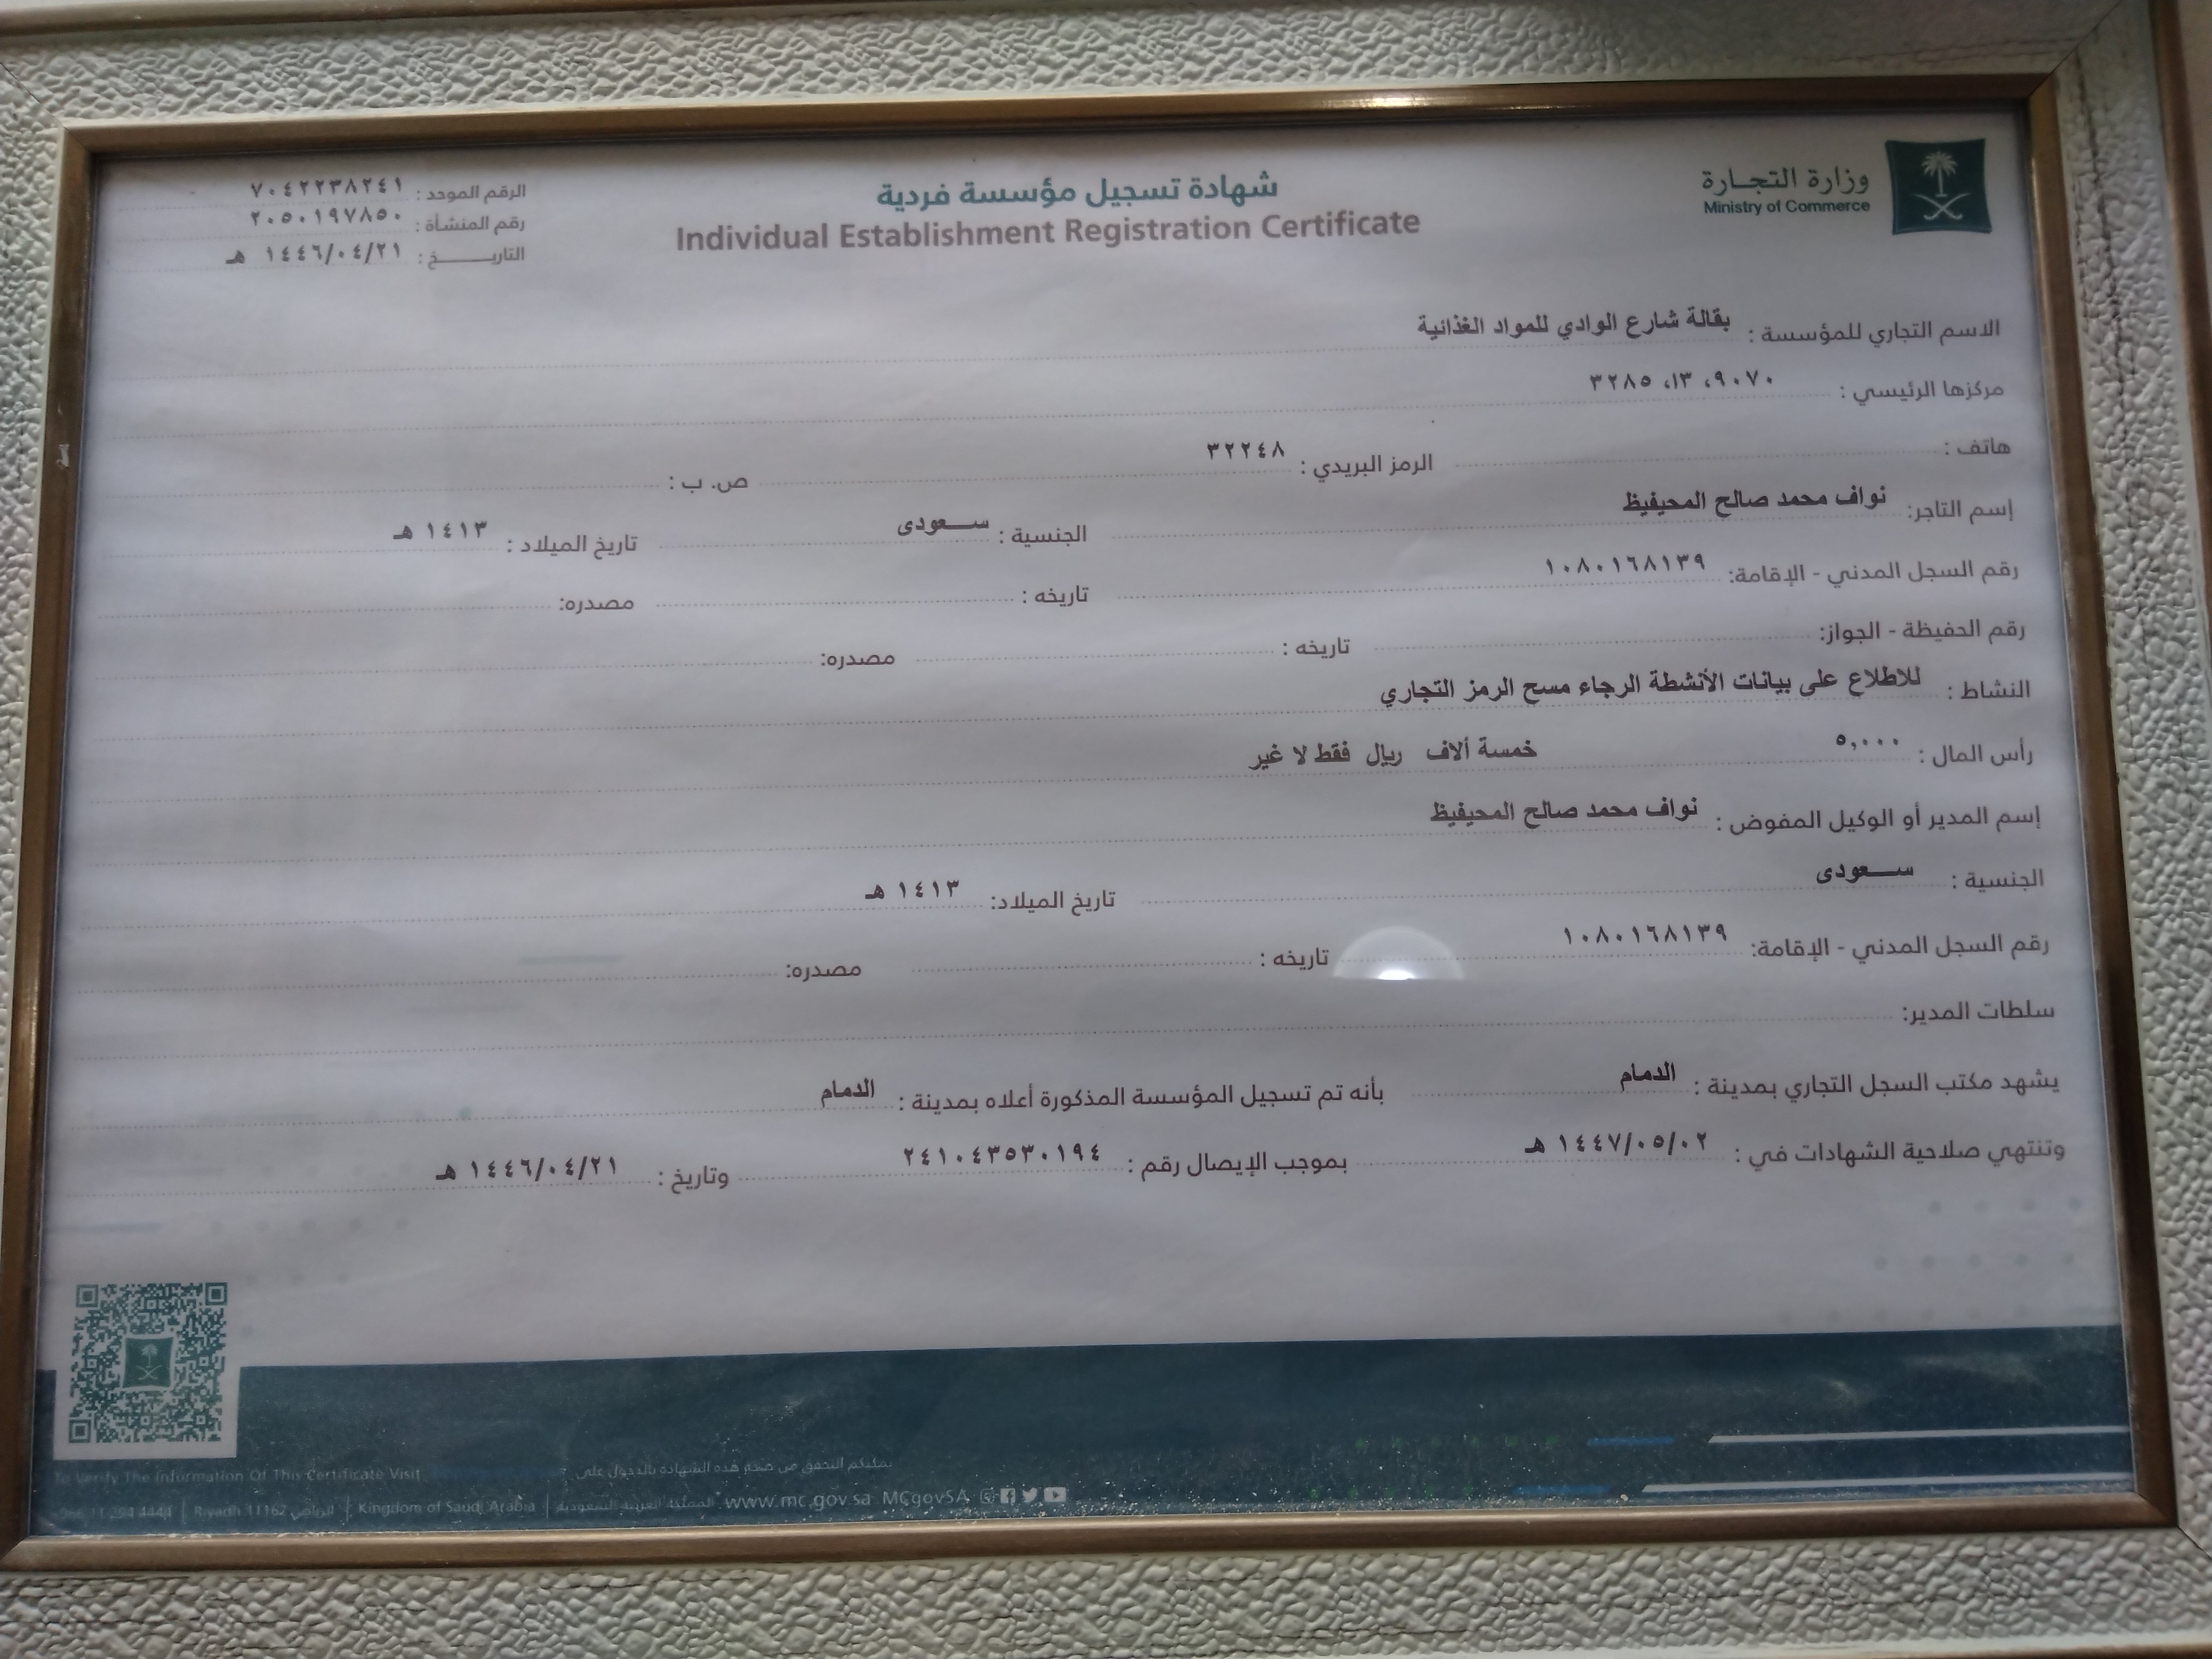 وزارة التجارة
Ministry of Commerce
شهادة تسجيل مؤسسة فردية
Individual Establishment Registration Certificate
الرقم الموحد : ٧٠٤٢٢٣٨٢٤١
رقم المنشأة : ٢٠٥٠١٩٧٨٥٠
التاريـــــــخ : ١٤٤٦/٠٤/٢١ هـ
الاسم التجاري للمؤسسة : بقالة شارع الوادي للمواد الغذائية
مركزها الرئيسي : ٩٠٧٠، ١٣، ٣٢٨٥
هاتف : الرمز البريدي : ٣٢٢٤٨ ص. ب :
إسم التاجر: نواف محمد صالح المحيفيظ الجنسية : ســـعودى تاريخ الميلاد : ١٤١٣ هـ
رقم السجل المدني - الإقامة: ١٠٨٠١٦٨١٣٩ تاريخه : مصدره:
رقم الحفيظة - الجواز: تاريخه : مصدره:
النشاط : للاطلاع على بيانات الأنشطة الرجاء مسح الرمز التجاري
رأس المال : ٥,٠٠٠ خمسة ألاف ريال فقط لا غير
إسم المدير أو الوكيل المفوض : نواف محمد صالح المحيفيظ
الجنسية : ســـعودى تاريخ الميلاد: ١٤١٣ هـ
رقم السجل المدني - الإقامة: ١٠٨٠١٦٨١٣٩ تاريخه : مصدره:
سلطات المدير:
يشهد مكتب السجل التجاري بمدينة : الدمام بأنه تم تسجيل المؤسسة المذكورة أعلاه بمدينة : الدمام
وتنتهي صلاحية الشهادات في : ١٤٤٧/٠٥/٠٢ هـ بموجب الإيصال رقم : ٢٤١٠٤٣٥٣٠١٩٤ وتاريخ : ١٤٤٦/٠٤/٢١ هـ
To Verify The Information Of This Certificate Visit يمكنكم التحقق من صحة هذه الشهادة بالدخول على
11 294 4444 | Riyadh 11162 الرياض | Kingdom of Saudi Arabia | المملكة العربية السعودية www.mc.gov.sa MCgovSA